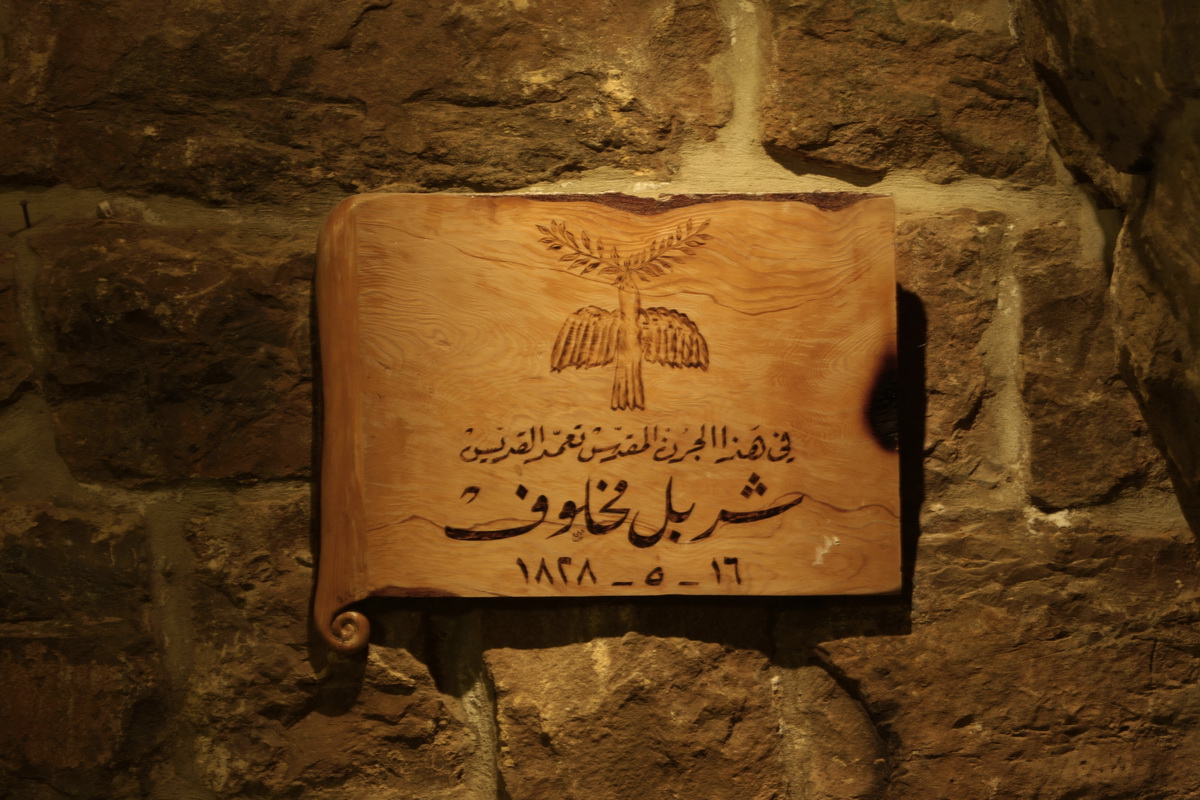 في هَذا الجرُن المقدّسْ تعمّد القدّيسْ
شربل مخلوف
١٦ - ٥ - ١٨٢٨